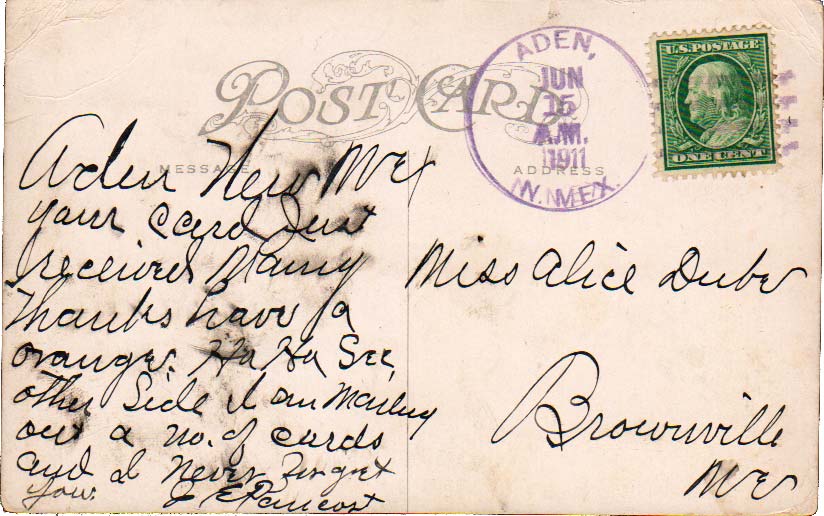 POST CARD
ADEN,
JUN
15
A.M.
1911
N. MEX.
U.S. POSTAGE
ONE CENT
MESSAGE
ADDRESS
Aden New Mex
your card Just
received Many
thanks have a
orange. Ha Ha See
other Side I am Mailing
out a no. of cards
and I Never Forget
you. J E Pancost
Miss Alice Dube
Brownville
Me